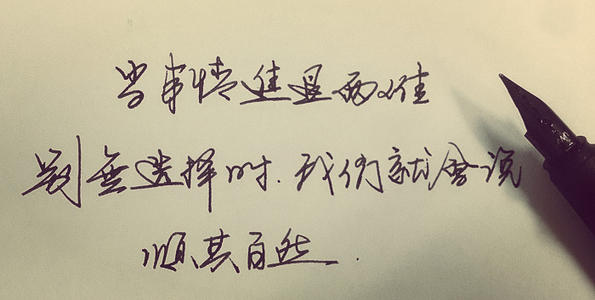 当事情进退两难
别無选择时.我们就會说
顺其自然.